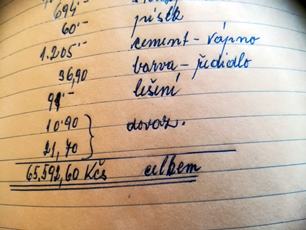 694'-
60'- písek
1.205'- cement - vápno
96,90 barva - ředidlo
94'- lešení
10.90 dovoz.
21,70
65.592,60 Kčs celkem